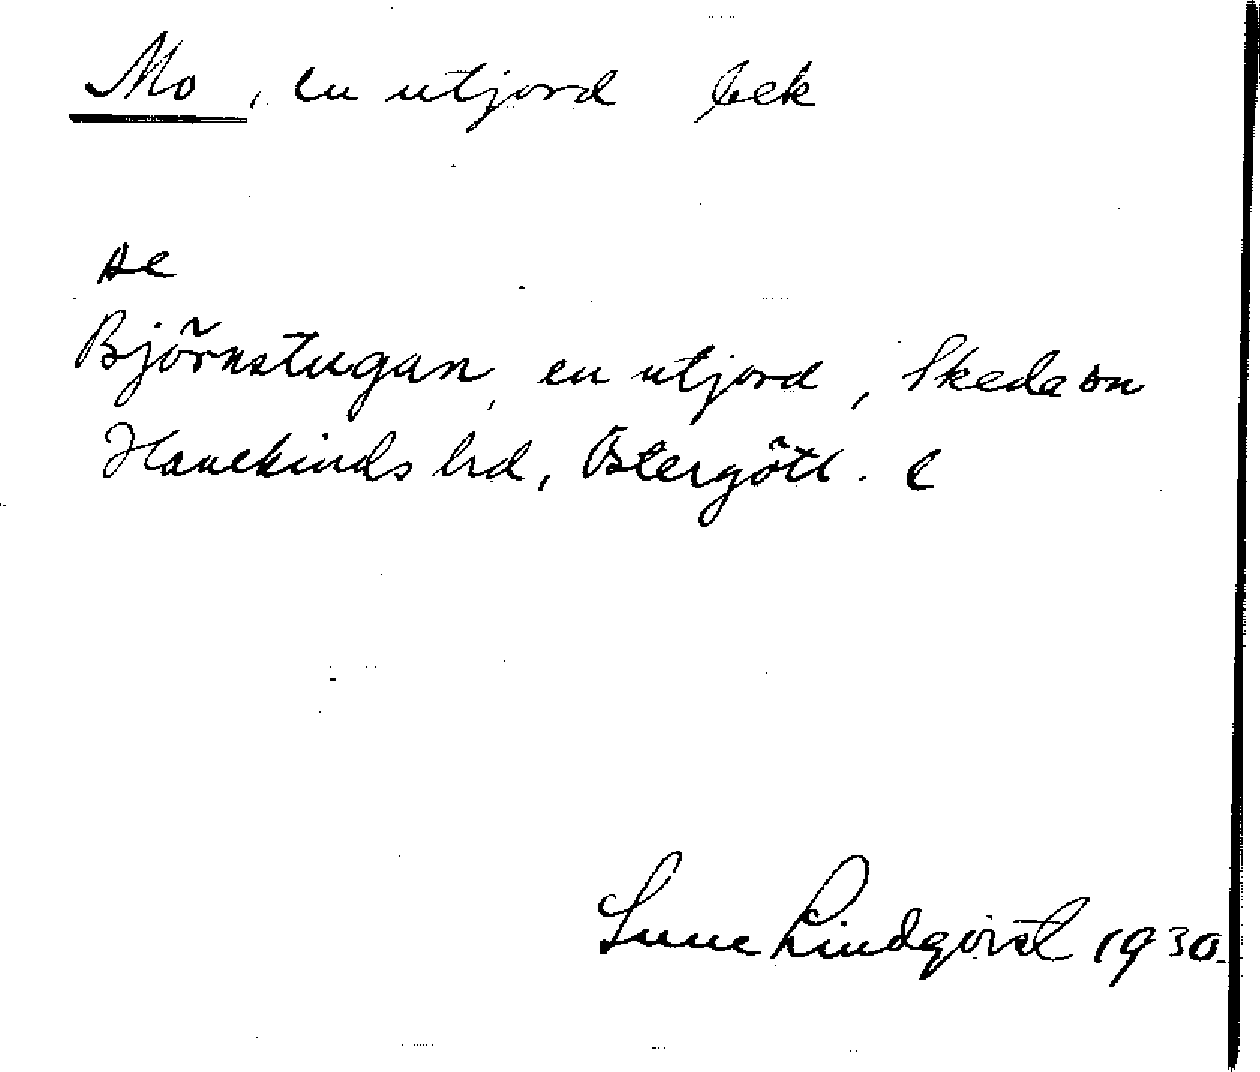 Mo, en utjord bek
se
Björnstugan, en utjord, Skeda sn
Hanekinds hd, Östergötl. l
Sune Lindqvist 1930.